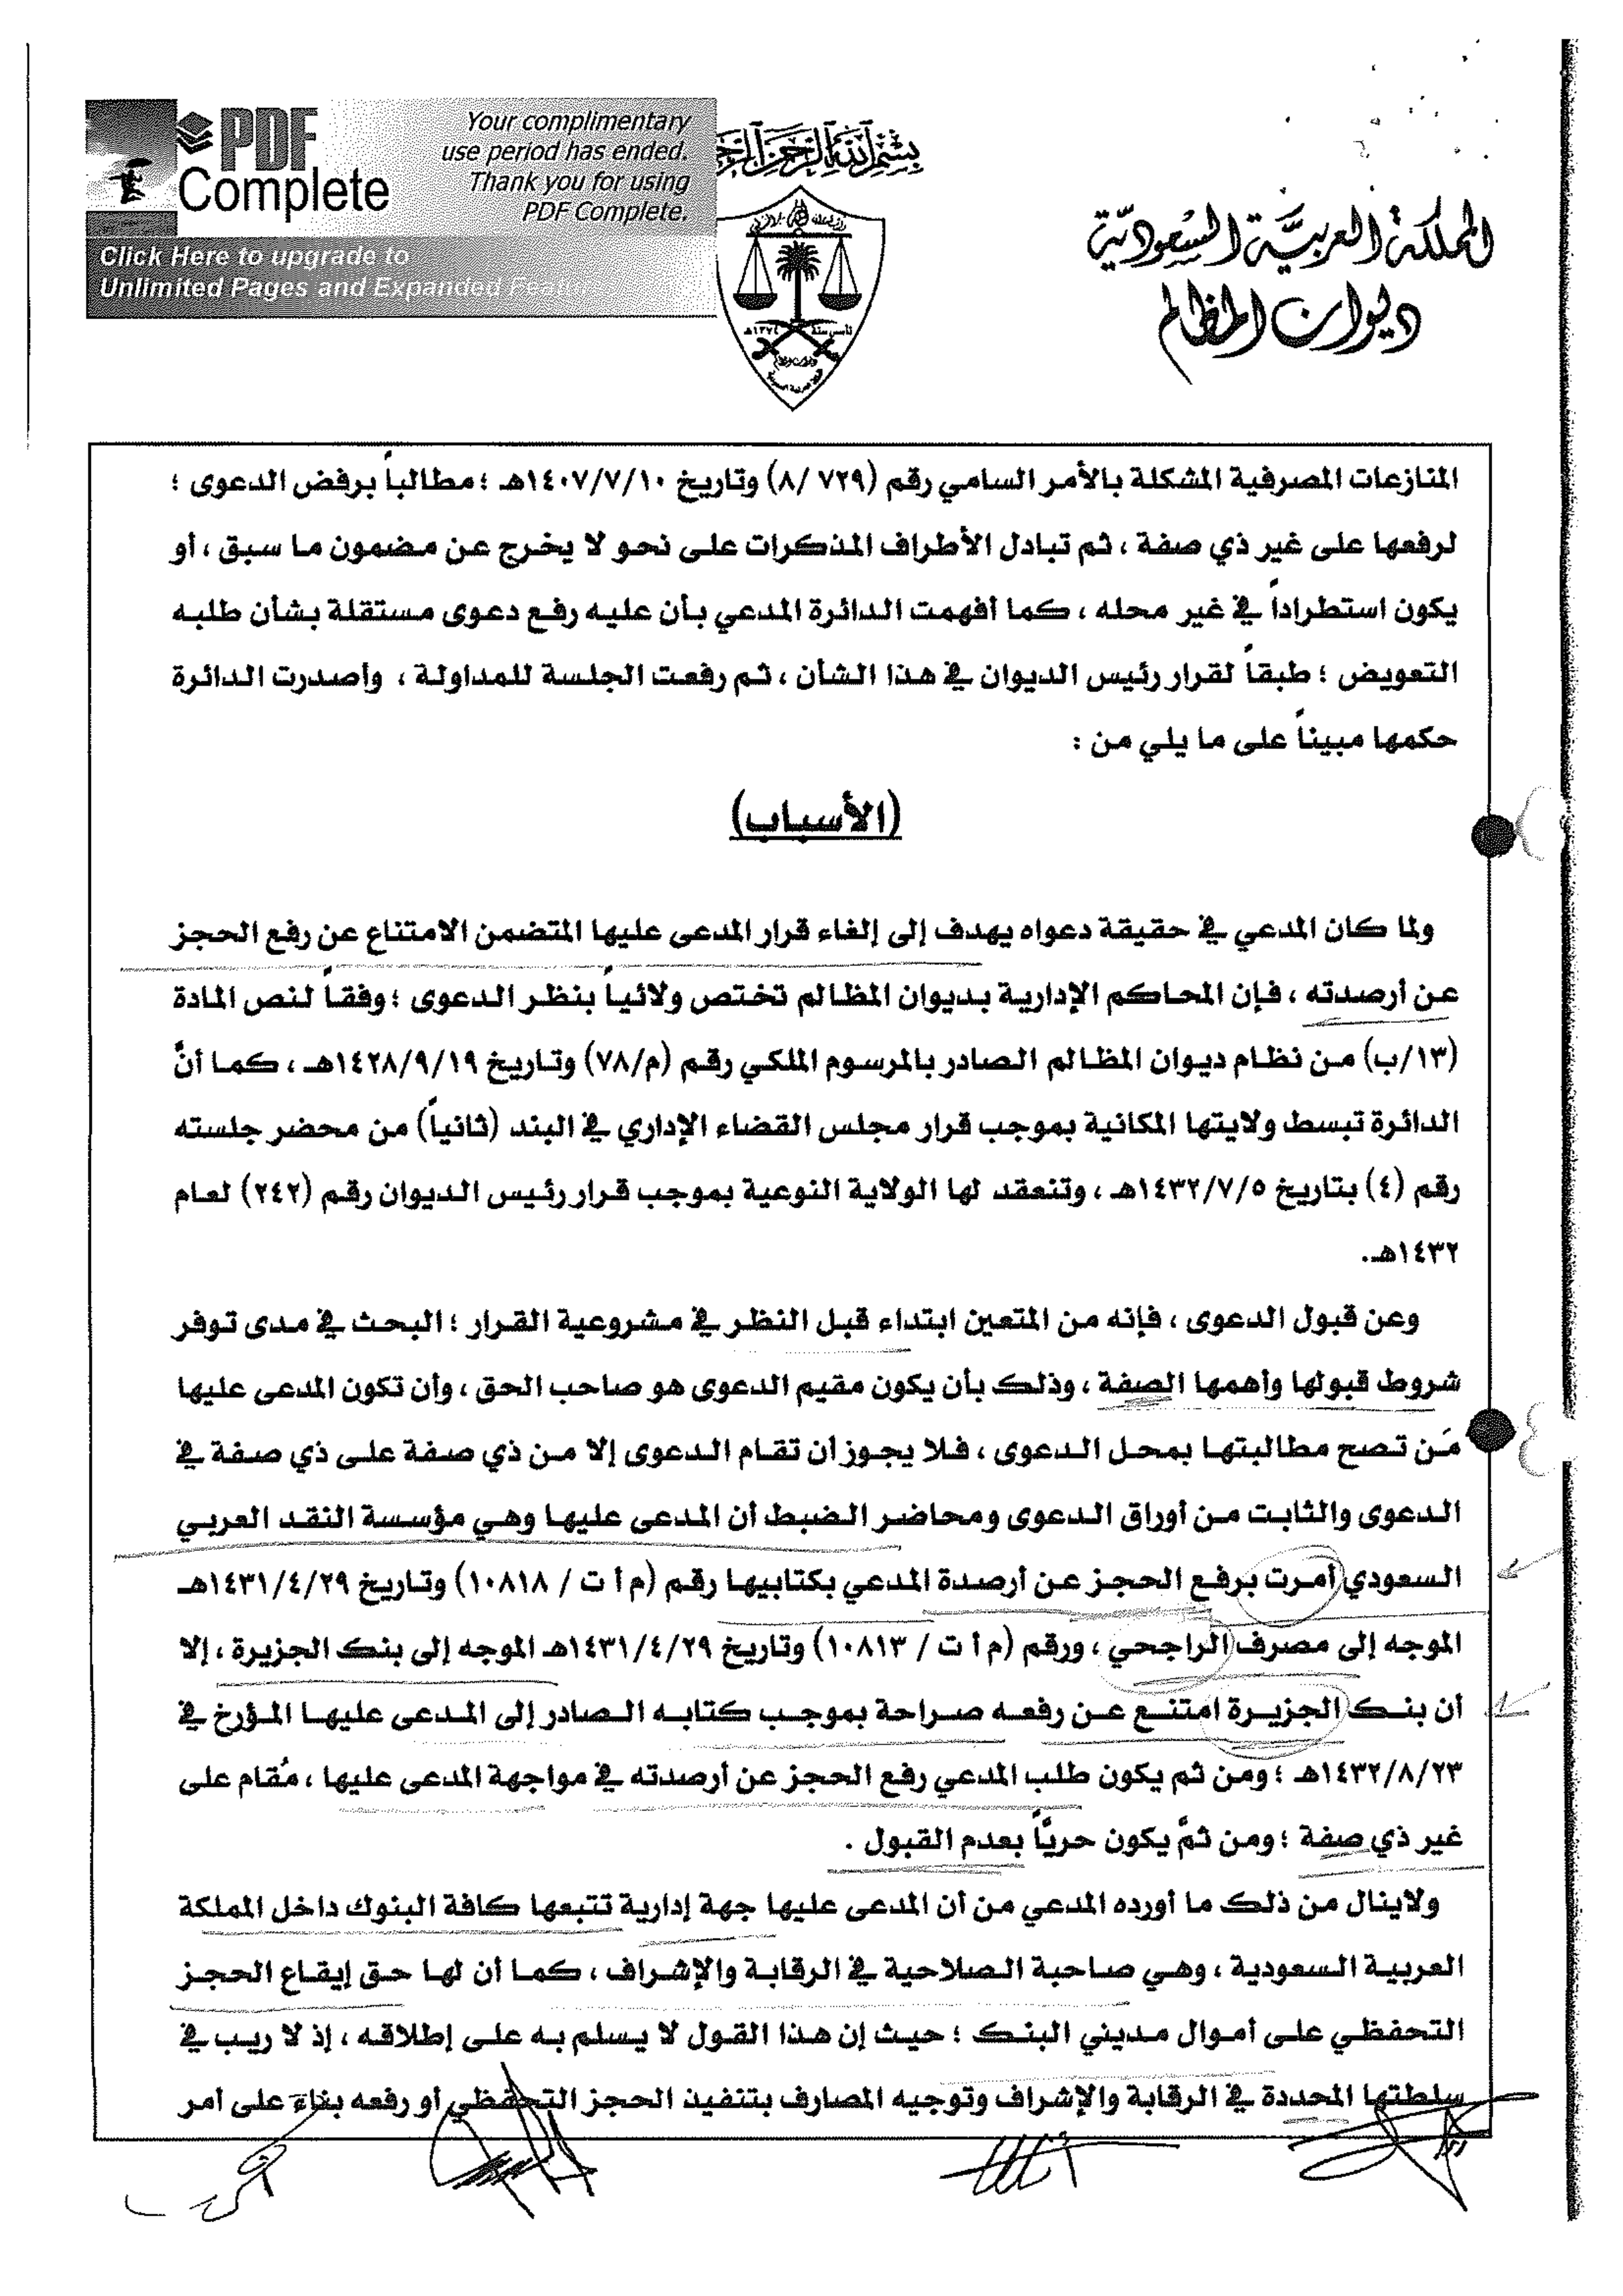 PDF Complete
Your complimentary
use period has ended.
Thank you for using
PDF Complete.
Click Here to upgrade to
Unlimited Pages and Expanded
بسم الله الرحمن الرحيم
المملكة العربية السعودية
ديوان المظالم
تأسس سنة ١٣٧٤هـ
المنازعات المصرفية المشكلة بالأمر السامي رقم (٧٢٩ /٨) وتاريخ ١٤٠٧/٧/١٠هـ ؛ مطالباً برفض الدعوى ؛
لرفعها على غير ذي صفة ، ثم تبادل الأطراف المذكرات على نحو لا يخرج عن مضمون ما سبق ، أو
يكون استطراداً في غير محله ، كما أفهمت الدائرة المدعي بأن عليه رفع دعوى مستقلة بشأن طلبه
التعويض ؛ طبقاً لقرار رئيس الديوان في هذا الشأن ، ثم رفعت الجلسة للمداولة ، وأصدرت الدائرة
حكمها مبيناً على ما يلي من :
(الأسباب)
ولما كان المدعي في حقيقة دعواه يهدف إلى إلغاء قرار المدعى عليها المتضمن الامتناع عن رفع الحجز
عن أرصدته ، فإن المحاكم الإدارية بديوان المظالم تختص ولائياً بنظر الدعوى ؛ وفقاً لنص المادة
(١٣/ب) من نظام ديوان المظالم الصادر بالمرسوم الملكي رقم (م/٧٨) وتاريخ ١٤٢٨/٩/١٩هـ ، كما أنَّ
الدائرة تبسط ولايتها المكانية بموجب قرار مجلس القضاء الإداري في البند (ثانياً) من محضر جلسته
رقم (٤) بتاريخ ١٤٣٢/٧/٥هـ ، وتنعقد لها الولاية النوعية بموجب قرار رئيس الديوان رقم (٢٤٢) لعام
١٤٣٢هـ.
وعن قبول الدعوى ، فإنه من المتعين ابتداء قبل النظر في مشروعية القرار ؛ البحث في مدى توفر
شروط قبولها وأهمها الصفة ، وذلك بأن يكون مقيم الدعوى هو صاحب الحق ، وأن تكون المدعى عليها
مَن تصح مطالبتها بمحل الدعوى ، فلا يجوز أن تقام الدعوى إلا من ذي صفة على ذي صفة في
الدعوى والثابت من أوراق الدعوى ومحاضر الضبط أن المدعى عليها وهي مؤسسة النقد العربي
السعودي أمرت برفع الحجز عن أرصدة المدعي بكتابيها رقم (م أ ت / ١٠٨١٨) وتاريخ ١٤٣١/٤/٢٩هـ
الموجه إلى مصرف الراجحي ، ورقم (م أ ت / ١٠٨١٣) وتاريخ ١٤٣١/٤/٢٩هـ الموجه إلى بنك الجزيرة ، إلا
أن بنك الجزيرة امتنع عن رفعه صراحة بموجب كتابه الصادر إلى المدعى عليها المؤرخ في
١٤٣٢/٨/٢٣هـ ؛ ومن ثم يكون طلب المدعي رفع الحجز عن أرصدته في مواجهة المدعى عليها ، مُقام على
غير ذي صفة ؛ ومن ثمَّ يكون حريّاً بعدم القبول .
ولاينال من ذلك ما أورده المدعي من أن المدعى عليها جهة إدارية تتبعها كافة البنوك داخل المملكة
العربية السعودية ، وهي صاحبة الصلاحية في الرقابة والإشراف ، كما أن لها حق إيقاع الحجز
التحفظي على أموال مديني البنك ؛ حيث إن هذا القول لا يسلم به على إطلاقه ، إذ لا ريب في
سلطتها المحددة في الرقابة والإشراف وتوجيه المصارف بتنفيذ الحجز التحفظي أو رفعه بناءً على أمر